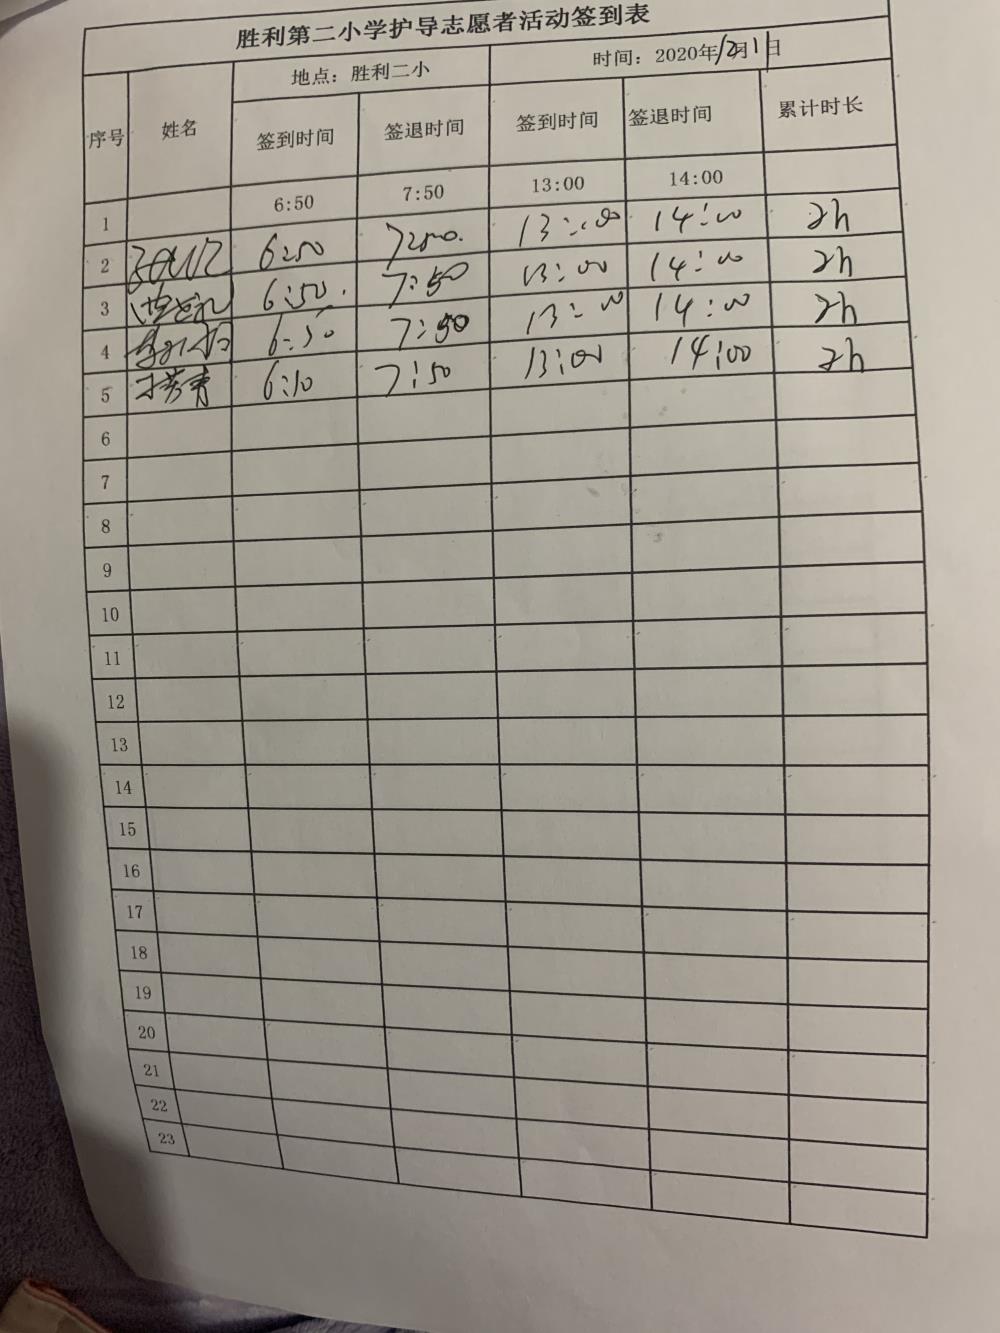 胜利第二小学护导志愿者活动签到表
地点：胜利二小 时间：2020年12月11日
序号 姓名 签到时间 签退时间 签到时间 签退时间 累计时长
1 6:50 7:50 13:00 14:00
2 6:50 7:50 13:00 14:00 2h
3 6:50 7:50 13:00 14:00 2h
4 6:50 7:50 13:00 14:00 2h
5 6:10 7:50 13:00 14:00 2h
6
7
8
9
10
11
12
13
14
15
16
17
18
19
20
21
22
23